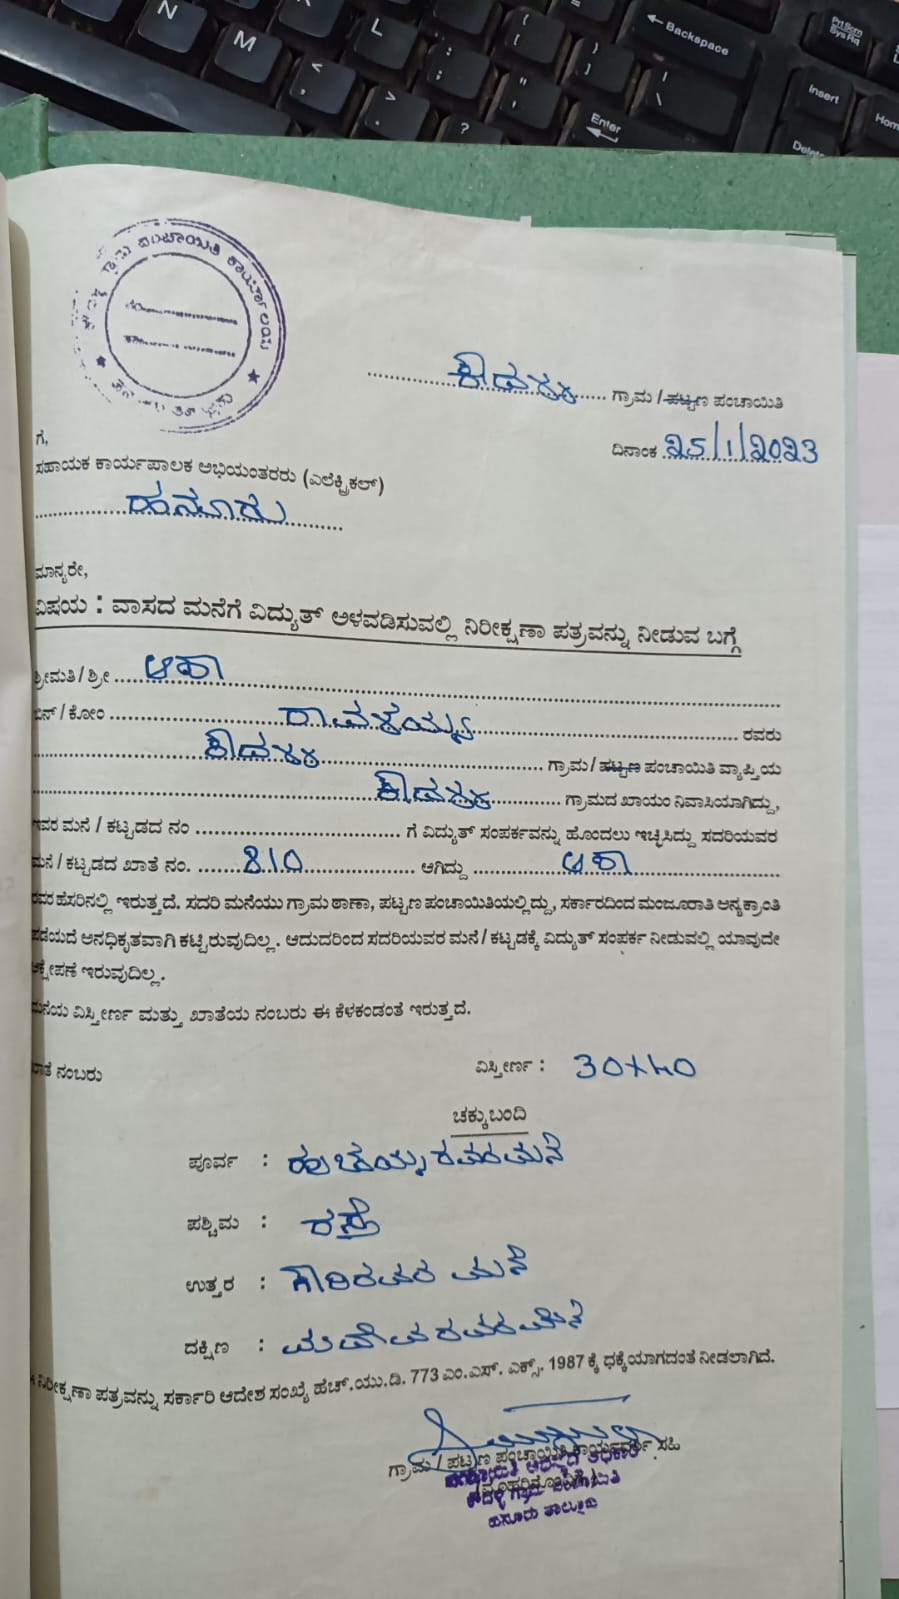 N
M
L
Backspace
PrtScrn
SysRq
Insert
Home
Enter
Delete
ಗ್ರಾಮ ಪಂಚಾಯಿತಿ ಕಾರ್ಯಾಲಯ
ಗ್ರಾಮ / ಪಟ್ಟಣ ಪಂಚಾಯಿತಿ
ಗೆ,
ದಿನಾಂಕ 25/1/2023
ಸಹಾಯಕ ಕಾರ್ಯಪಾಲಕ ಅಭಿಯಂತರರು (ಎಲೆಕ್ಟ್ರಿಕಲ್)
ಹನೂರು
ಮಾನ್ಯರೇ,
ವಿಷಯ : ವಾಸದ ಮನೆಗೆ ವಿದ್ಯುತ್ ಅಳವಡಿಸುವಲ್ಲಿ ನಿರೀಕ್ಷಣಾ ಪತ್ರವನ್ನು ನೀಡುವ ಬಗ್ಗೆ
ಶ್ರೀಮತಿ / ಶ್ರೀ
ಬಿನ್ / ಕೋಂ ರವರು
ಗ್ರಾಮ / ಪಟ್ಟಣ ಪಂಚಾಯಿತಿ ವ್ಯಾಪ್ತಿಯ
ಗ್ರಾಮದ ಖಾಯಂ ನಿವಾಸಿಯಾಗಿದ್ದು,
ಇವರ ಮನೆ / ಕಟ್ಟಡದ ನಂ ಗೆ ವಿದ್ಯುತ್ ಸಂಪರ್ಕವನ್ನು ಹೊಂದಲು ಇಚ್ಛಿಸಿದ್ದು ಸದರಿಯವರ
ಮನೆ / ಕಟ್ಟಡದ ಖಾತೆ ನಂ. 810 ಆಗಿದ್ದು
ರವರ ಹೆಸರಿನಲ್ಲಿ ಇರುತ್ತದೆ. ಸದರಿ ಮನೆಯು ಗ್ರಾಮ ಠಾಣಾ, ಪಟ್ಟಣ ಪಂಚಾಯಿತಿಯಲ್ಲಿದ್ದು, ಸರ್ಕಾರದಿಂದ ಮಂಜೂರಾತಿ ಅನ್ಯಕ್ರಾಂತಿ
ಪಡೆಯದೆ ಅನಧಿಕೃತವಾಗಿ ಕಟ್ಟಿರುವುದಿಲ್ಲ. ಆದುದರಿಂದ ಸದರಿಯವರ ಮನೆ / ಕಟ್ಟಡಕ್ಕೆ ವಿದ್ಯುತ್ ಸಂಪರ್ಕ ನೀಡುವಲ್ಲಿ ಯಾವುದೇ
ಆಕ್ಷೇಪಣೆ ಇರುವುದಿಲ್ಲ.
ಮನೆಯ ವಿಸ್ತೀರ್ಣ ಮತ್ತು ಖಾತೆಯ ನಂಬರು ಈ ಕೆಳಕಂಡಂತೆ ಇರುತ್ತದೆ.
ಖಾತೆ ನಂಬರು ವಿಸ್ತೀರ್ಣ : 30x40
ಚಕ್ಕುಬಂದಿ
ಪೂರ್ವ : ರವರ ಮನೆ
ಪಶ್ಚಿಮ : ರಸ್ತೆ
ಉತ್ತರ : ಗೌರಿರವರ ಮನೆ
ದಕ್ಷಿಣ : ಮಹದೇವರವರ ಮನೆ
ನಿರೀಕ್ಷಣಾ ಪತ್ರವನ್ನು ಸರ್ಕಾರಿ ಆದೇಶ ಸಂಖ್ಯೆ ಹೆಚ್.ಯು.ಡಿ. 773 ಎಂ.ಎಸ್. ಎಕ್ಸ್. 1987 ಕ್ಕೆ ಧಕ್ಕೆಯಾಗದಂತೆ ನೀಡಲಾಗಿದೆ.
ಗ್ರಾಮ / ಪಟ್ಟಣ ಪಂಚಾಯಿತಿ ಕಾರ್ಯದರ್ಶಿ ಸಹಿ
ಹನೂರು ತಾಲ್ಲೂಕು